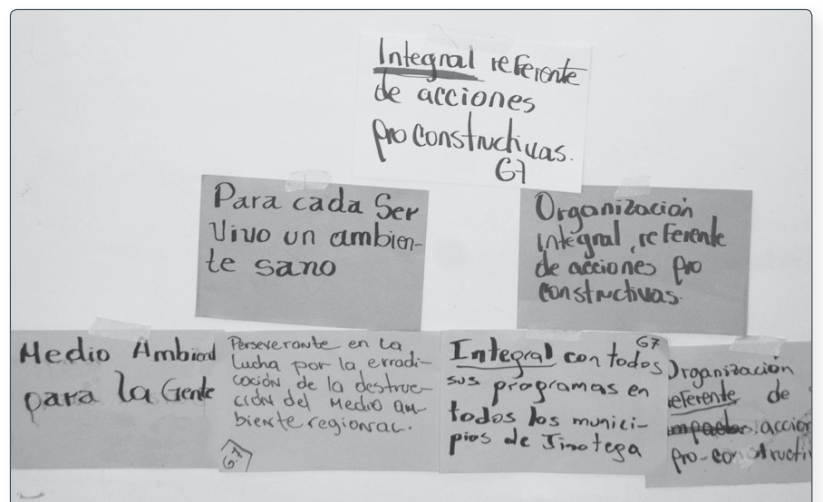 Integral referente
de acciones
pro constructivas.
G7
Para cada Ser
Vivo un ambien-
te sano
Organización
integral, referente
de acciones pro
constructivas.
Medio Ambient
para la Gente
Perseverante en la
lucha por la erradi-
cación de la destruc-
ción del Medio am-
biente regional.
G7
G7
Integral con todos
sus programas en
todos los munici-
pios de Jinotega
Organización
referente de
impactos accion
pro-constructi